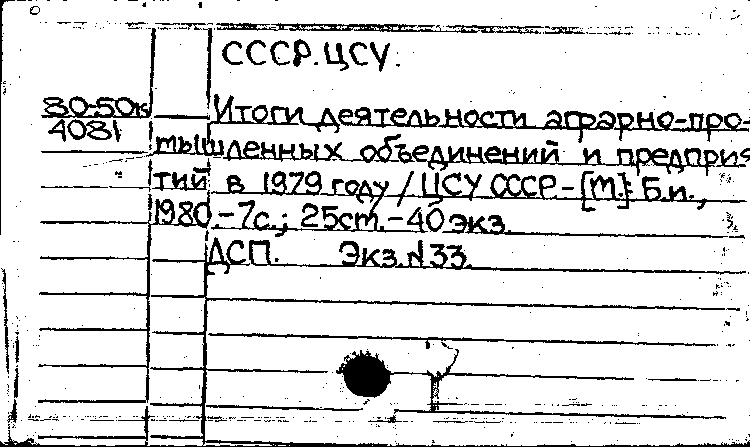 СССР. ЦСУ.
80-50к
4081
Итоги деятельности аграрно-про-
мышленных объединений и предприя
тий в 1979 году / ЦСУ СССР. - [М]: Б.и.,
1980. - 7с.; 25см. - 40 экз.
ДСП. Экз. N 33.